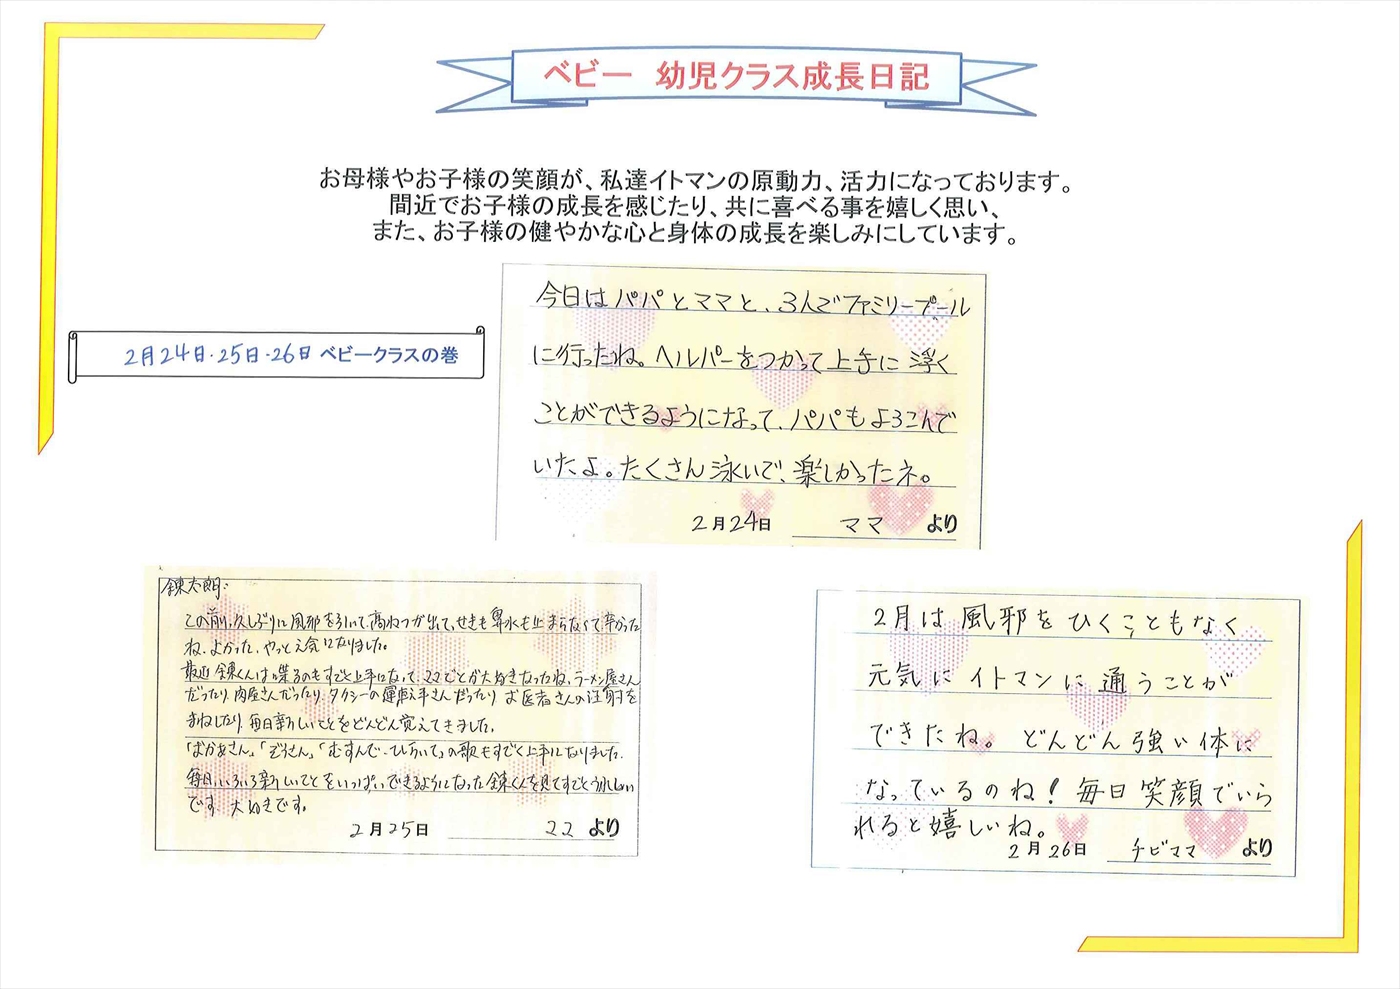 ベビー 幼児クラス成長日記
お母様やお子様の笑顔が、私達イトマンの原動力、活力になっております。
間近でお子様の成長を感じたり、共に喜べる事を嬉しく思い、
また、お子様の健やかな心と身体の成長を楽しみにしています。
2月24日・25日・26日 ベビークラスの巻
今日はパパとママと、3人でファミリープール
に行ったね。ヘルパーをつかって上手に浮く
ことができるようになって、パパもよろこんで
いたよ。たくさん泳いで、楽しかったネ。
2月24日 ママ より
錬太朗:
この前、久しぶりに風邪を引いて、高ねつが出て、せきも鼻水も止まらなくて辛かった
ね、よかった、やっと元気になりました。
最近錬くんは喋るのもすごく上手になって、ママごとが大好きなったね、ラーメン屋さん
だったり、肉屋さんだったり、タクシーの運転手さんだったり、お医者さんの注射を
まねしたり、毎日新しいことをどんどん覚えてきました。
「おかあさん」「ぞうさん」「むすんで・ひらいて」の歌もすごく上手になりました。
毎日、いろいろ新しいことをいっぱい、できるようになった錬くんを見てすごくうれしい
です。大好きです。
2月25日 ママ より
2月は風邪をひくこともなく
元気にイトマンに通うことが
できたね。どんどん強い体に
なっているのね!毎日笑顔でいら
れると嬉しいね。
2月26日 チビママ より